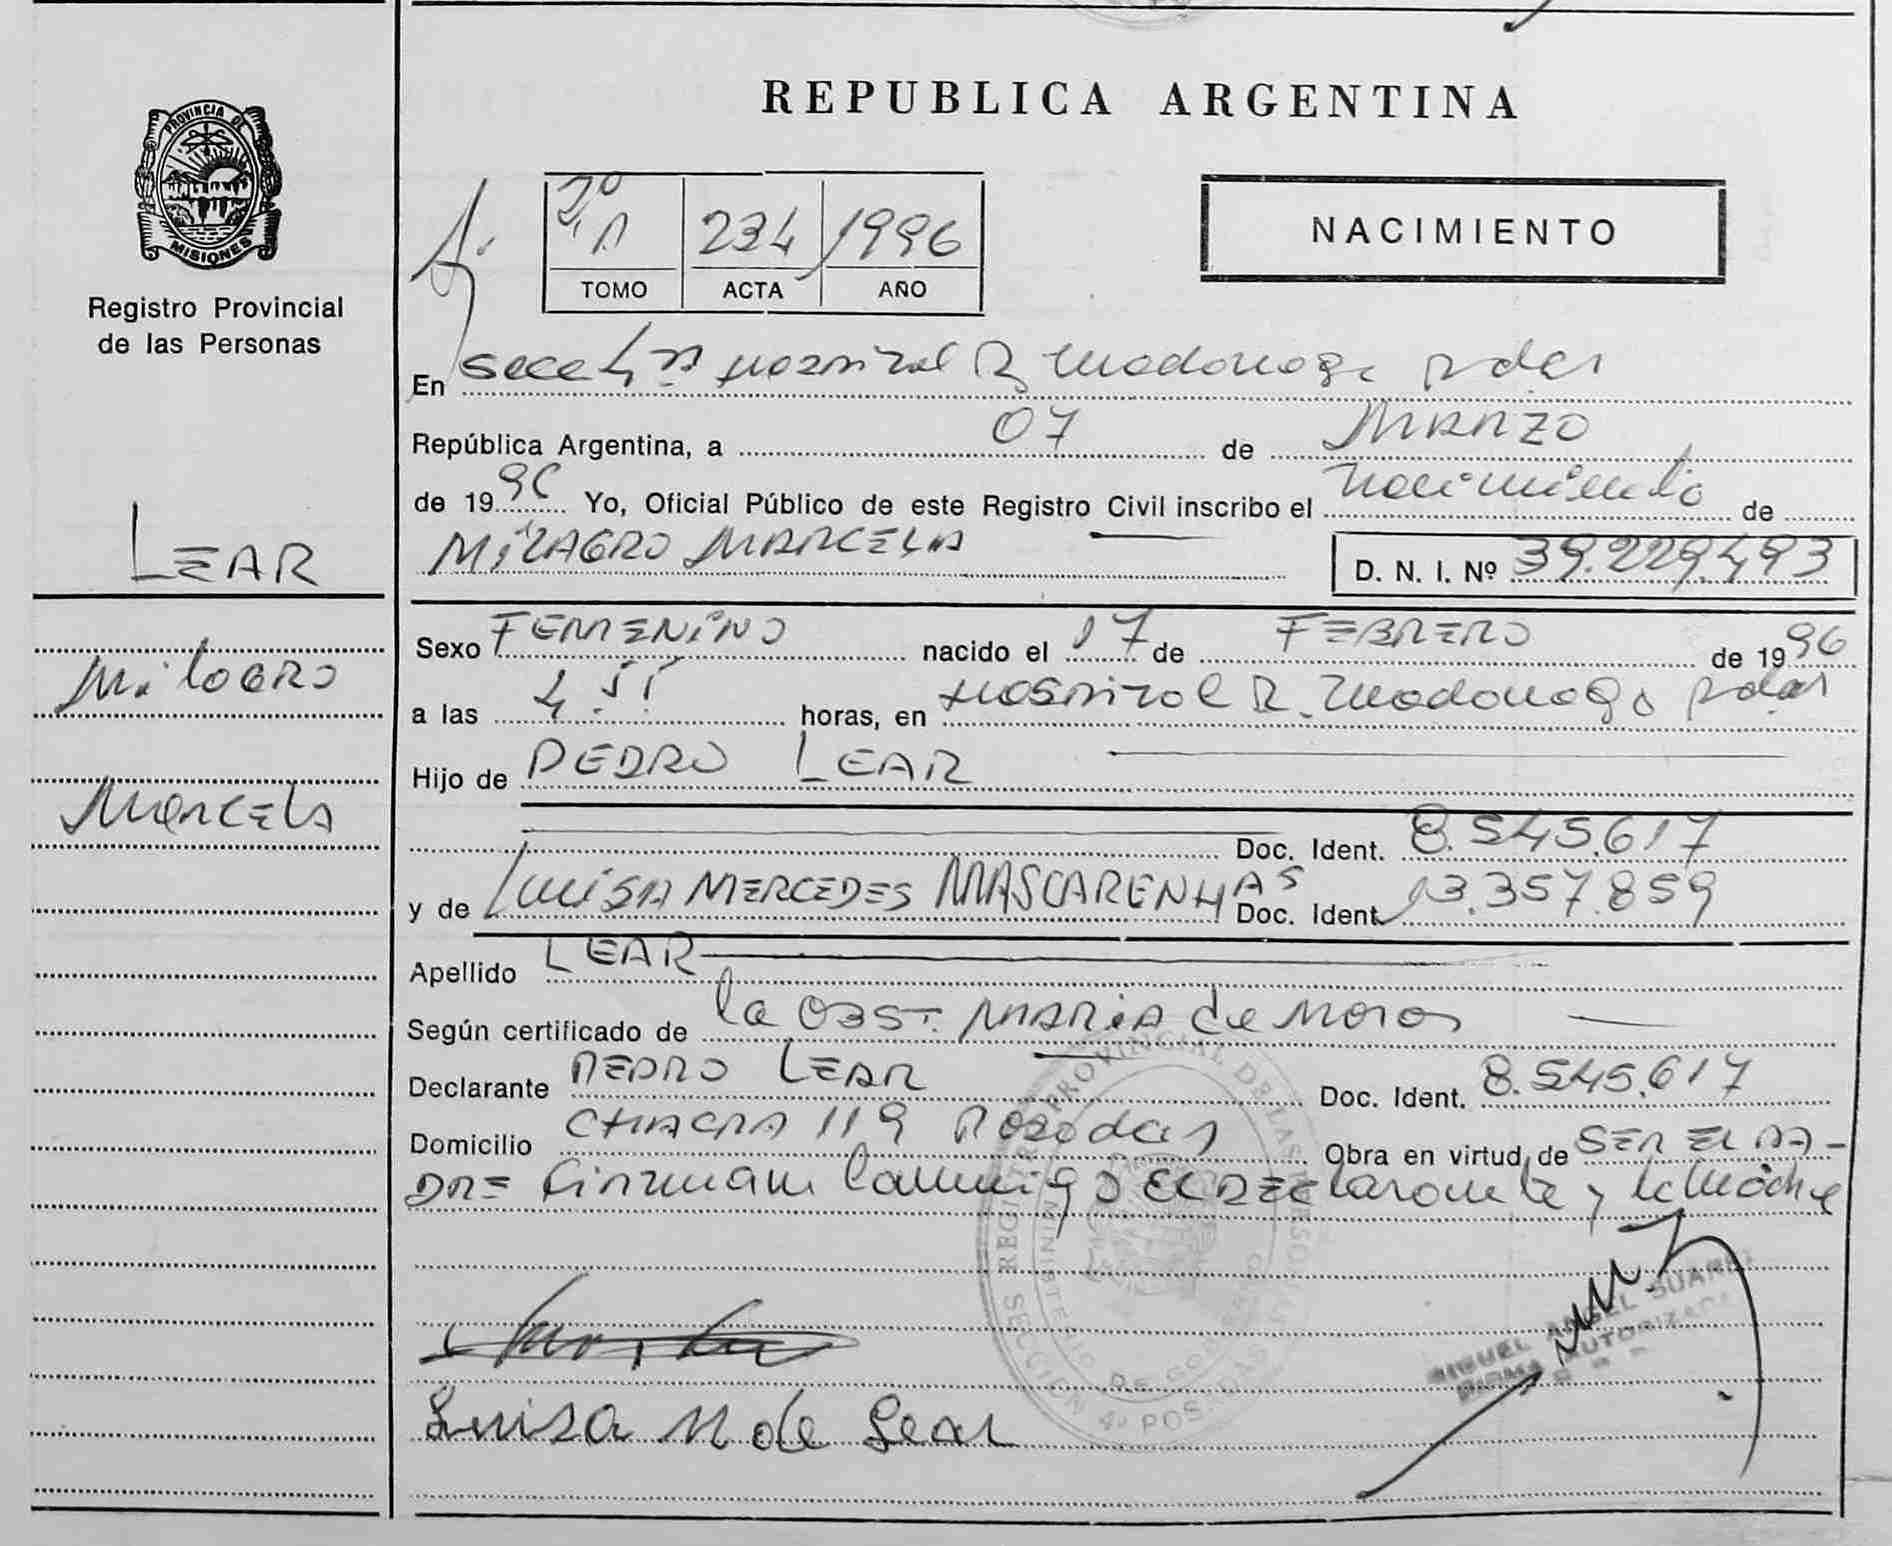 REPUBLICA ARGENTINA
PROVINCIA DE
MISIONES
Registro Provincial
de las Personas
234 1996
TOMO ACTA AÑO
NACIMIENTO
En Secc 4ta Hospital R Madariaga Pdas
República Argentina, a 07 de MARZO
de 1996 Yo, Oficial Público de este Registro Civil inscribo el Nacimiento de
MILAGRO MARCELA D. N. I. Nº 39.229.493
LEAR
Milagro
Marcela
Sexo FEMENINO nacido el 17 de FEBRERO de 1996
a las 4.55 horas, en Hospital R. Madariaga Pdas
Hijo de PEDRO LEAR
Doc. Ident. 8.545.617
y de LUISA MERCEDES MASCARENHAS Doc. Ident. 13.357.859
Apellido LEAR
Según certificado de la OBST. MARIA de Moros
Declarante PEDRO LEAR Doc. Ident. 8.545.617
Domicilio CHACRA 119 Posadas Obra en virtud de SER EL PA-
DRE Firman Conmigo El DEClarante y la Madre
REGISTRO PROVINCIAL DE LAS PERSONAS
MINISTERIO DE GOBIERNO
SECCION 4º POSADAS
MIGUEL ANGEL SUAREZ
FIRMA AUTORIZADA
Luisa M de Lear